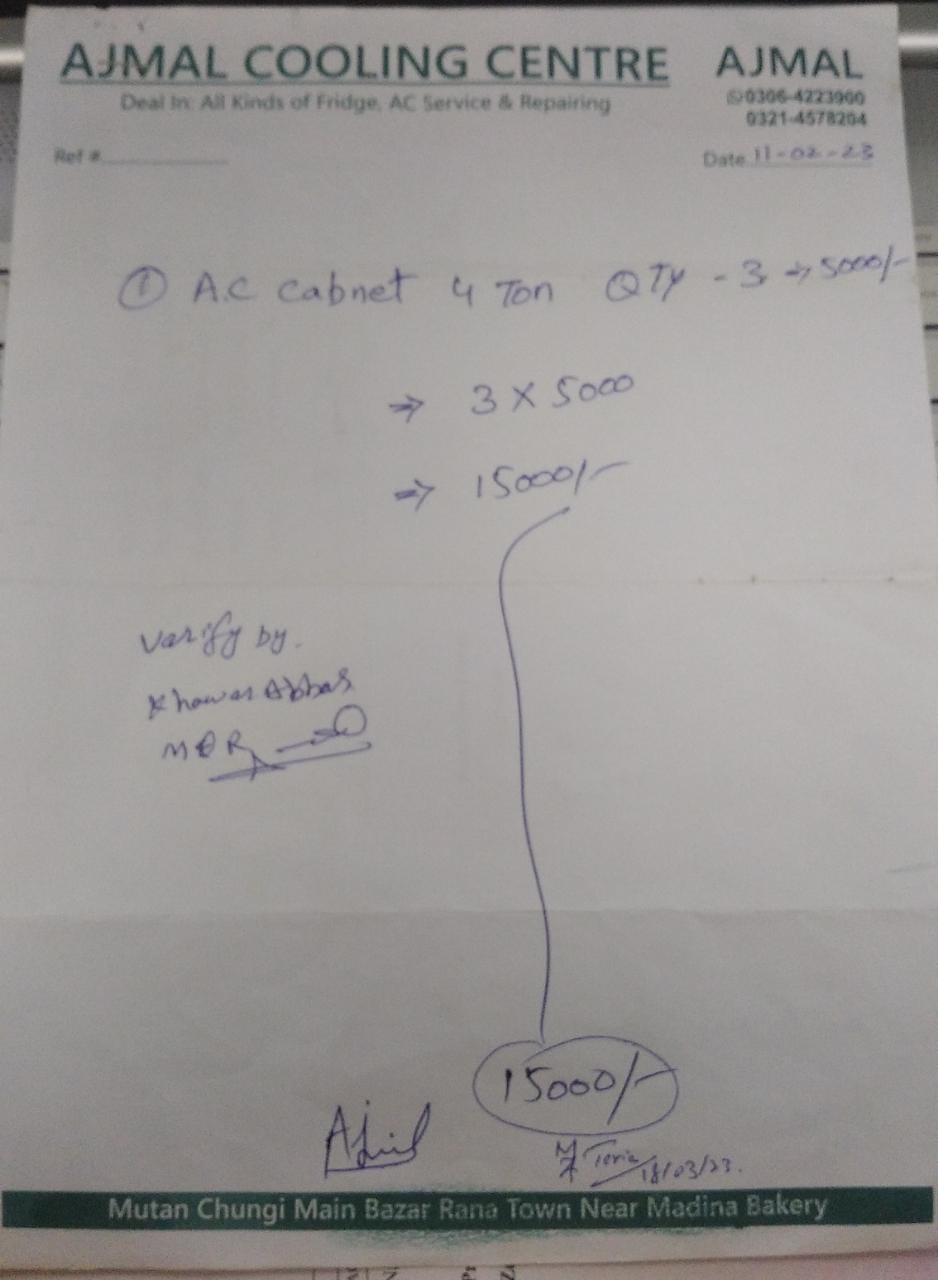 AJMAL COOLING CENTRE
Deal In: All Kinds of Fridge, AC Service & Repairing
AJMAL
0306-4223900
0321-4578204
Ref #
Date 11-02-23
① A.C Cabnet 4 Ton QTY - 3 → 5000/-
⇒ 3 X 5000
⇒ 15000/-
Varify by.
Khawar Abbas
15000/-
18/03/23.
Mutan Chungi Main Bazar Rana Town Near Madina Bakery